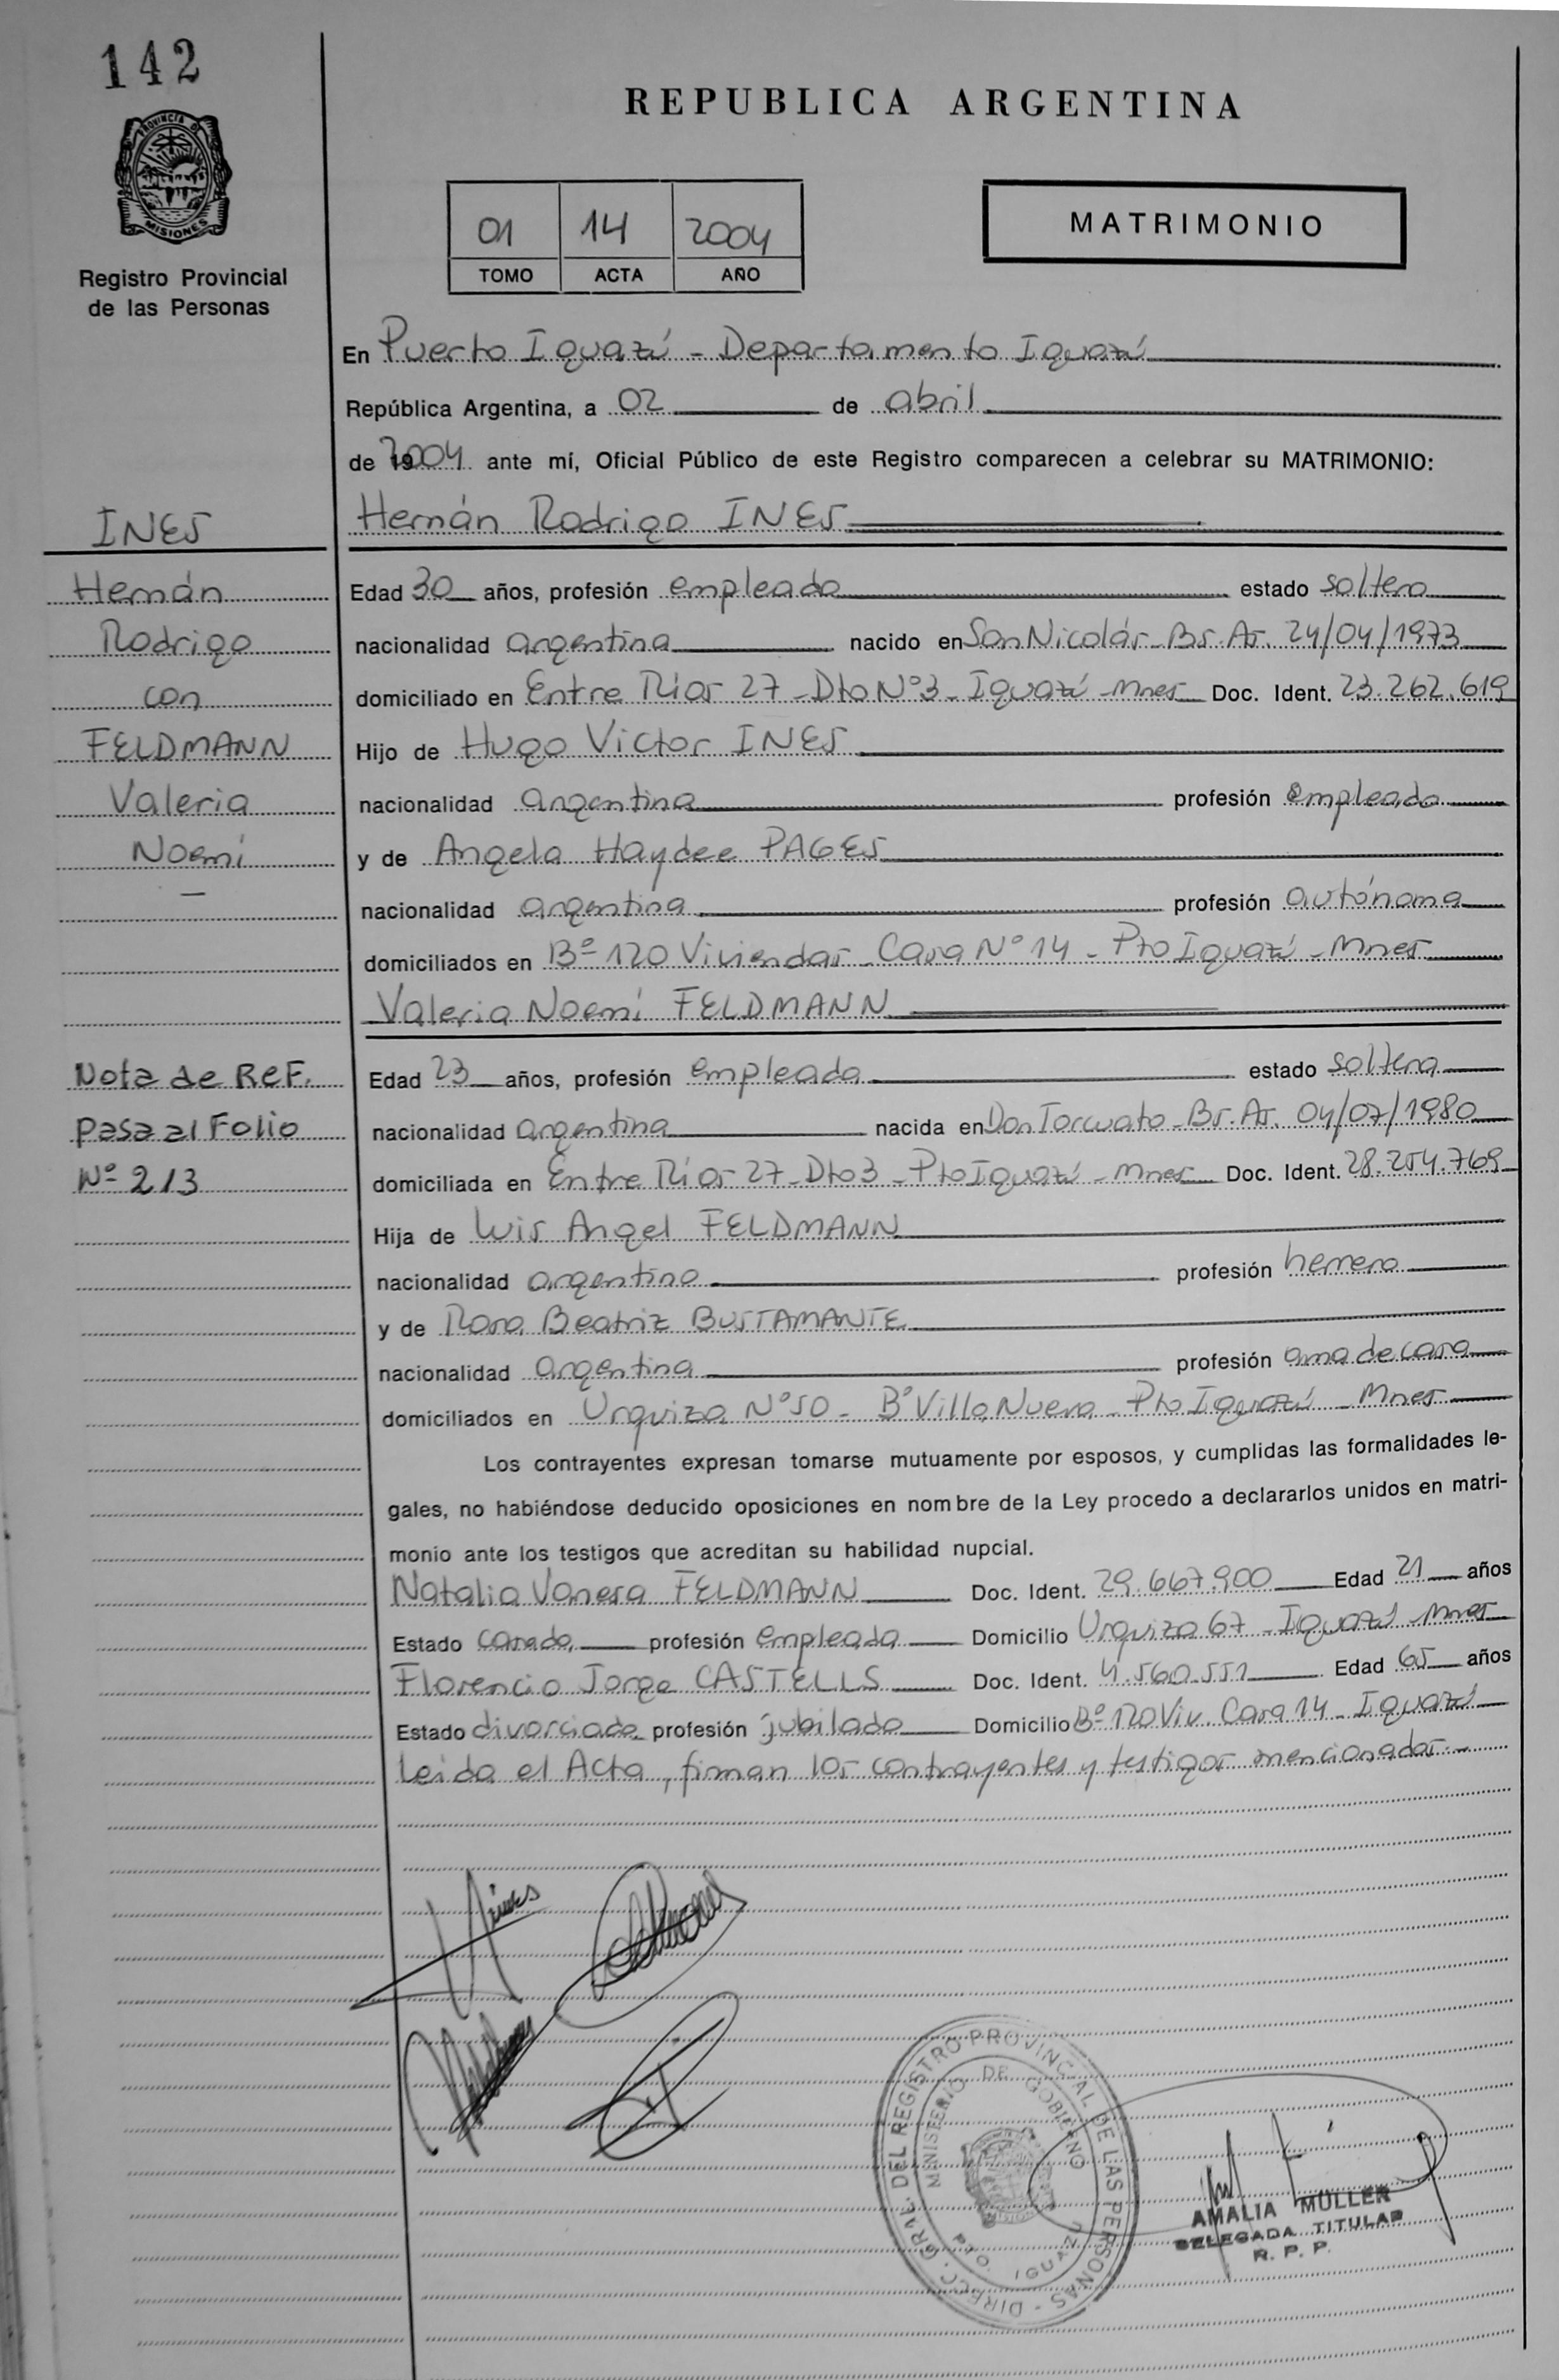 142
REPUBLICA ARGENTINA
PROVINCIA DE
MISIONES
Registro Provincial
de las Personas
01 14 2004
TOMO ACTA AÑO
MATRIMONIO
En Puerto Iguazú - Departamento Iguazú
República Argentina, a 02 de abril
de 2004 ante mí, Oficial Público de este Registro comparecen a celebrar su MATRIMONIO:
Hernán Rodrigo INES
INES
Hernán
Rodrigo
con
FELDMANN
Valeria
Noemí
-
Edad 30 años, profesión empleado estado soltero
nacionalidad argentina nacido en San Nicolás - Bs. As. 24/04/1973
domiciliado en Entre Ríos 27 - Dto Nº 3 - Iguazú - Mnes Doc. Ident. 23.262.619
Hijo de Hugo Victor INES
nacionalidad argentina profesión empleado
y de Angela Haydee PAGES
nacionalidad argentina profesión autónoma
domiciliados en Bº 120 Viviendas - Casa Nº 14 - Pto Iguazú - Mnes
Valeria Noemí FELDMANN
Nota de REF.
Pasa al Folio
Nº 213
Edad 23 años, profesión empleada estado soltera
nacionalidad argentina nacida en Don Torcuato - Bs. As. 04/07/1980
domiciliada en Entre Ríos 27 - Dto 3 - Pto Iguazú - Mnes Doc. Ident. 28.254.769
Hija de Luis Angel FELDMANN
nacionalidad argentina profesión herrero
y de Rosa Beatriz BUSTAMANTE
nacionalidad argentina profesión ama de casa
domiciliados en Urquiza Nº 50 - Bº Villa Nueva - Pto Iguazú - Mnes
Los contrayentes expresan tomarse mutuamente por esposos, y cumplidas las formalidades le-
gales, no habiéndose deducido oposiciones en nombre de la Ley procedo a declararlos unidos en matri-
monio ante los testigos que acreditan su habilidad nupcial.
Natalia Vanesa FELDMANN Doc. Ident. 29.667.900 Edad 21 años
Estado casada profesión empleada Domicilio Urquiza 67 - Iguazú - Mnes
Florencio Jorge CASTELLS Doc. Ident. 4.560.551 Edad 65 años
Estado divorciado profesión jubilado Domicilio Bº 120 Viv. Casa 14 - Iguazú
Leída el Acta, firman los contrayentes y testigos mencionados.-
DIRECC. GRAL. DEL REGISTRO PROVINCIAL DE LAS PERSONAS -
MINISTERIO DE GOBIERNO
PTO. IGUAZU
AMALIA MULLER
DELEGADA TITULAR
R. P. P.